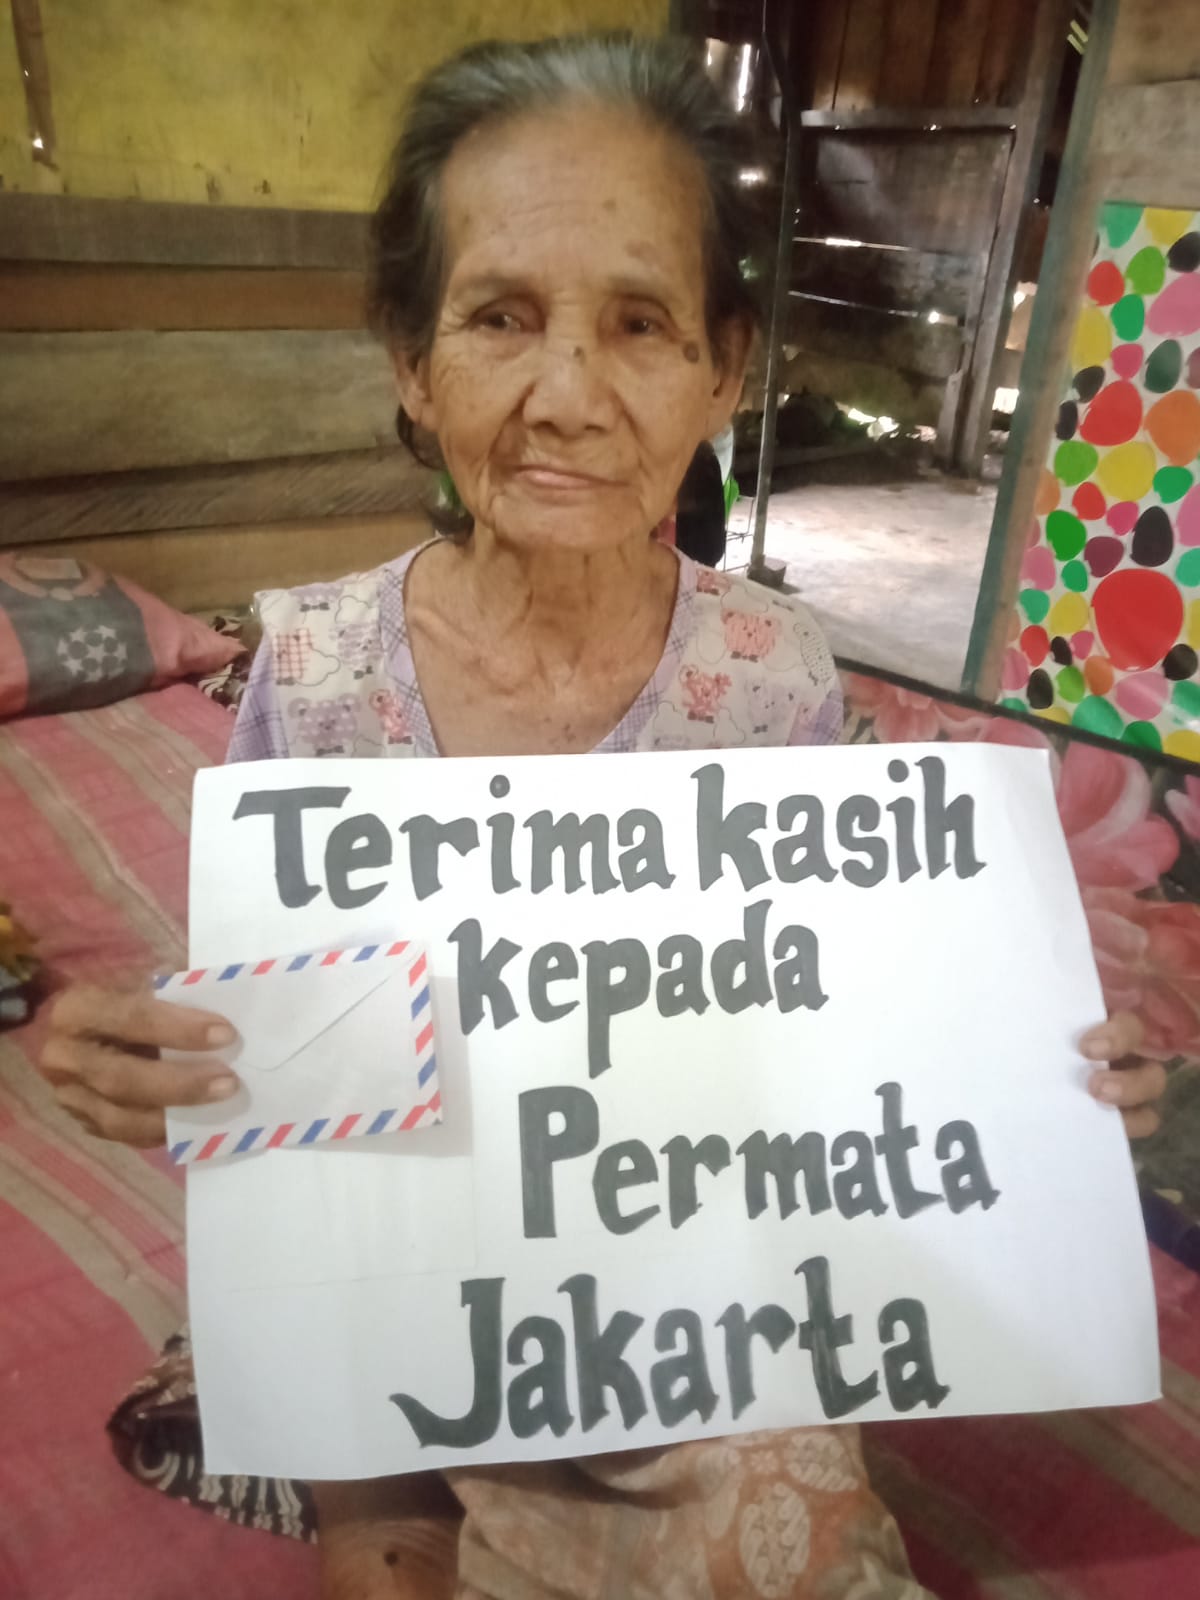 Terima kasih
kepada
Permata
Jakarta